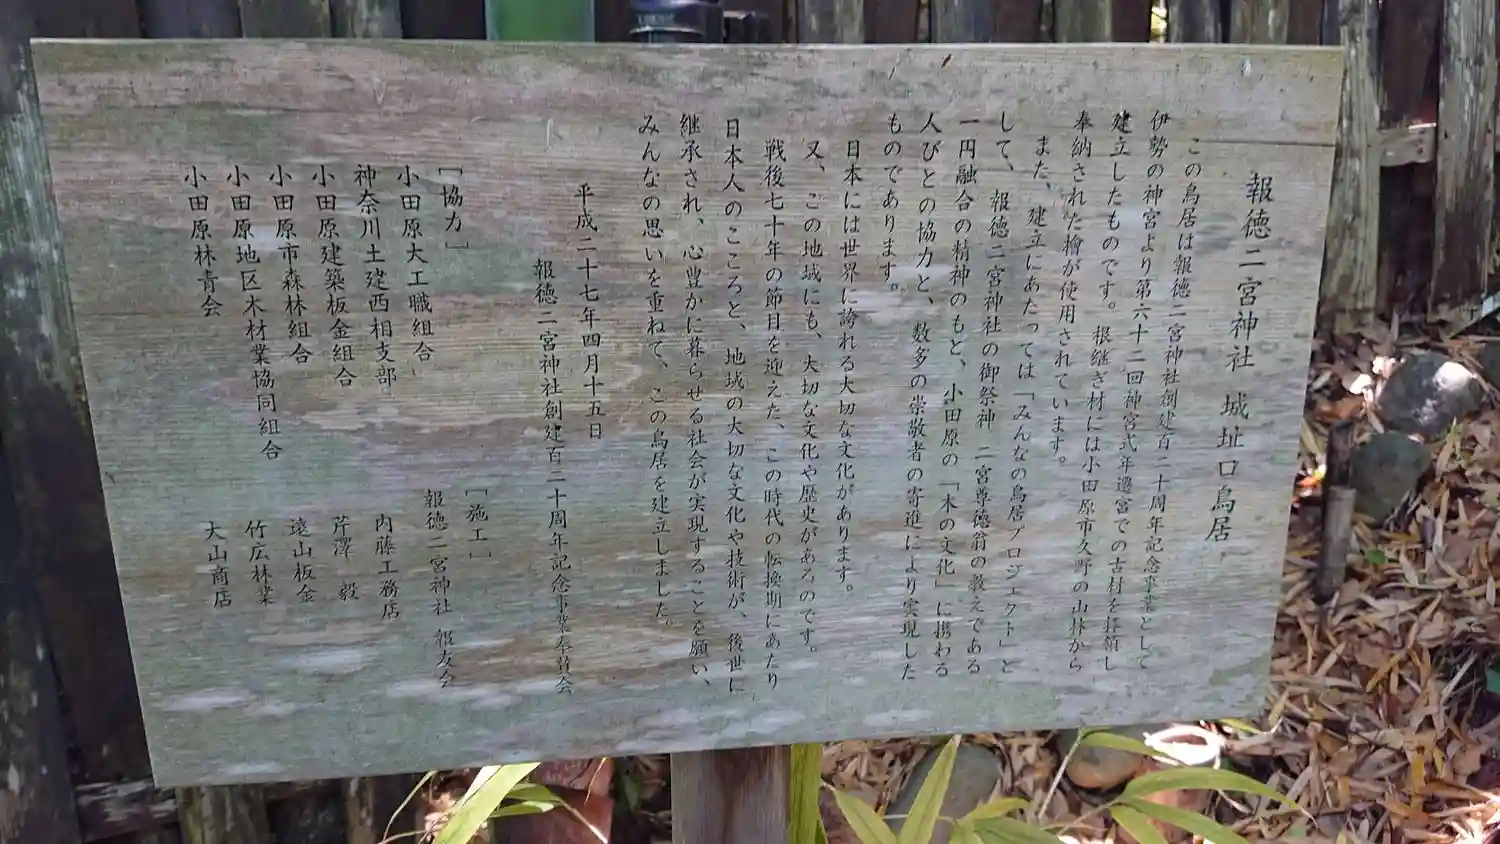 報徳二宮神社 城址口鳥居
この鳥居は報徳二宮神社創建百二十周年記念事業として
伊勢の神宮より第六十二回神宮式年遷宮での古材を拝領し
建立したものです。 根継ぎ材には小田原市久野の山林から
奉納された檜が使用されています。
また、建立にあたっては「みんなの鳥居プロジェクト」と
して、 報徳二宮神社の御祭神 二宮尊徳翁の教えである
一円融合の精神のもと、 小田原の「木の文化」に携わる
人びとの協力と、 数多の崇敬者の寄進により実現した
ものであります。
日本には世界に誇れる大切な文化があります。
又、この地域にも、大切な文化や歴史があるのです。
戦後七十年の節目を迎えた、この時代の転換期にあたり
日本人のこころと、地域の大切な文化や技術が、後世に
継承され、心豊かに暮らせる社会が実現することを願い、
みんなの思いを重ねて、この鳥居を建立しました。
平成二十七年四月十五日
報徳二宮神社創建百二十周年記念事業奉賛会
[協力]
小田原大工職組合
神奈川土建西相支部
小田原建築板金組合
小田原市森林組合
小田原地区木材業協同組合
小田原林青会
[施工]
報徳二宮神社 報友会
内藤工務店
芹澤 毅
遠山板金
竹広林業
大山商店